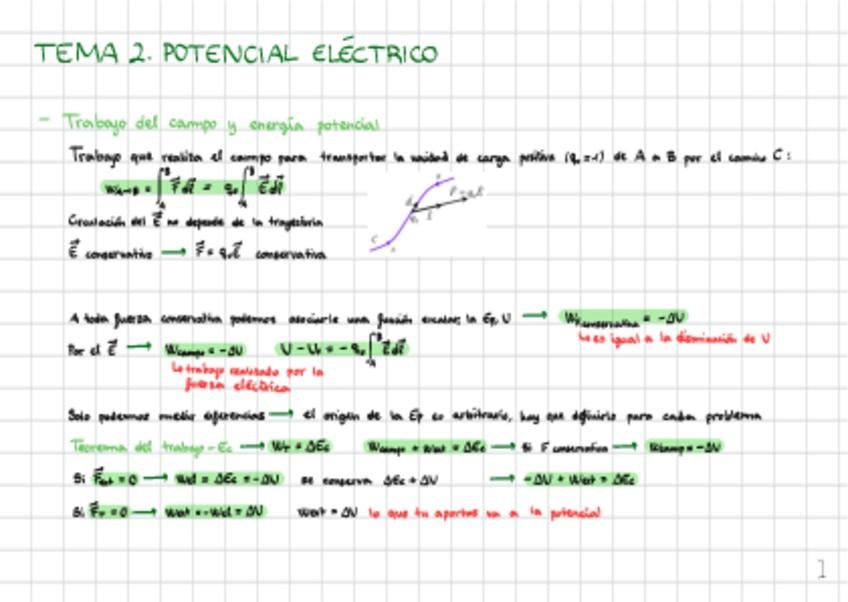 TEMA 2. POTENCIAL ELÉCTRICO
- Trabajo del campo y energía potencial
Trabajo que realiza el campo para transportar la unidad de carga positiva (q₀=+1) de A a B por el camino C:
W_A→B = ∫_A^B F⃗dl⃗ = q₀∫_A^B E⃗dl⃗
Circulación del E⃗ no depende de la trayectoria
E⃗ conservativo → F⃗ = q₀E⃗ conservativa
A toda fuerza conservativa podemos asociarle una función escalar; la Ep, U → W_F conservativa = -ΔU
↳ es igual a la disminución de U
Por el E⃗ → W_campo = -ΔU U - U₀ = -q₀∫_A^B E⃗dl⃗
↳ trabajo realizado por la
fuerza eléctrica
Solo podemos medir diferencias → el origen de la Ep es arbitrario, hay que definirlo para cada problema
Teorema del trabajo-Ec → W_T = ΔEc W_campo + Wext = ΔEc → Si F conservativa → W_campo = -ΔU
Si F⃗ext = 0 → Wel = ΔEc = -ΔU se conserva ΔEc + ΔU → -ΔU + Wext = ΔEc
Si F⃗_T = 0 → Wext = -Wel = ΔU Wext = ΔU lo que tu aportas va a la potencial
1